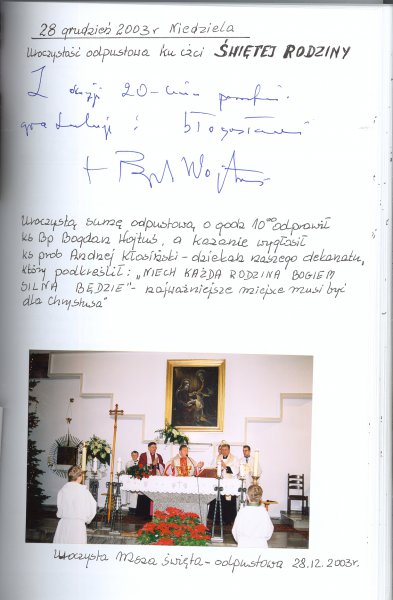 28 grudzień 2003 r Niedziela
Uroczystość odpustowa ku czci ŚWIĘTEJ RODZINY
Z okazji 20-lecia parafii
gratuluję i błogosławię
+ Bp Wojtuś
Uroczystą sumę odpustową o godz 10⁰⁰ odprawił
ks Bp Bogdan Wojtuś, a kazanie wygłosił
ks prob Andrzej Kłosiński - dziekan naszego dekanatu,
który podkreślił: „NIECH KAŻDA RODZINA BOGIEM
SILNA BĘDZIE" - najważniejsze miejsce musi być
dla Chrystusa"
Uroczysta Msza święta - odpustowa 28.12.2003r.